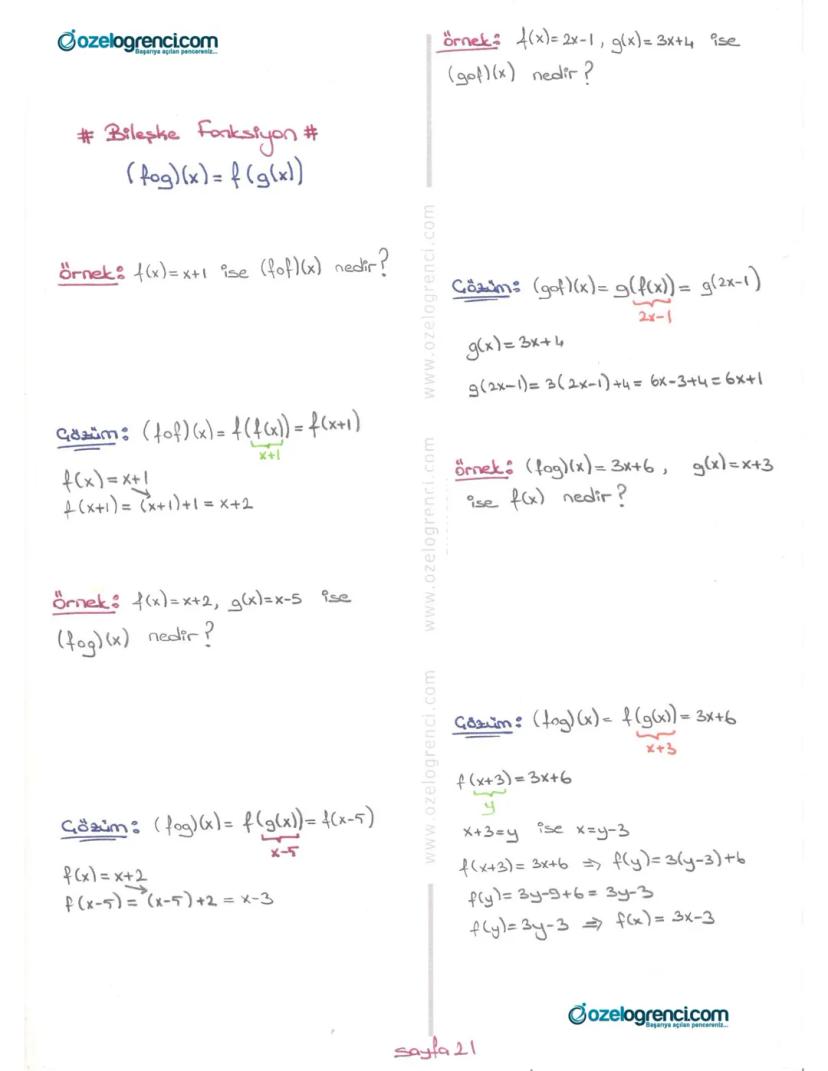 ozelogrenci.com
Başarıya açılan pencereniz...
# Bileşke Fonksiyon #
(fog)(x) = f(g(x))
Örnek: f(x) = x+1 ise (fof)(x) nedir?
Çözüm: (fof)(x) = f(f(x)) = f(x+1)
x+1
f(x) = x+1
f(x+1) = (x+1)+1 = x+2
Örnek: f(x) = x+2, g(x) = x-5 ise
(fog)(x) nedir?
Çözüm: (fog)(x) = f(g(x)) = f(x-5)
x-5
f(x) = x+2
f(x-5) = (x-5)+2 = x-3
www.ozelogrenci.com
www.ozelogrenci.com
www.ozelogrenci.com
Örnek: f(x) = 2x-1, g(x) = 3x+4 ise
(gof)(x) nedir?
Çözüm: (gof)(x) = g(f(x)) = g(2x-1)
2x-1
g(x) = 3x+4
g(2x-1) = 3(2x-1)+4 = 6x-3+4 = 6x+1
Örnek: (fog)(x) = 3x+6, g(x) = x+3
ise f(x) nedir?
Çözüm: (fog)(x) = f(g(x)) = 3x+6
x+3
f(x+3) = 3x+6
y
x+3=y ise x=y-3
f(x+3) = 3x+6 ⇒ f(y) = 3(y-3)+6
f(y) = 3y-9+6 = 3y-3
f(y) = 3y-3 ⇒ f(x) = 3x-3
ozelogrenci.com
Başarıya açılan pencereniz...
sayfa 21